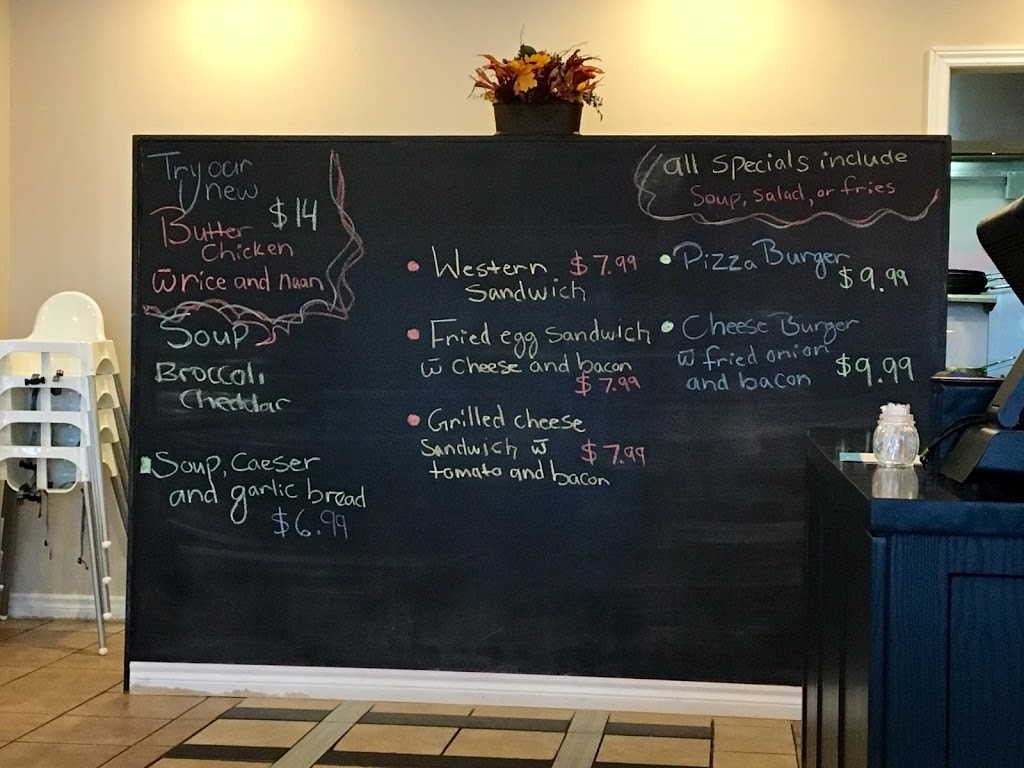 Try our
new
Butter $14
Chicken
w̄ rice and naan
Soup
Broccoli
Cheddar
Soup, Caeser
and garlic bread
$6.99
Western $7.99
Sandwich
Fried egg Sandwich
w̄ Cheese and bacon
$7.99
Grilled cheese
Sandwich w̄ $7.99
tomato and bacon
all Specials include
Soup, Salad, or fries
Pizza Burger
$9.99
Cheese Burger
w̄ fried onion
and bacon $9.99